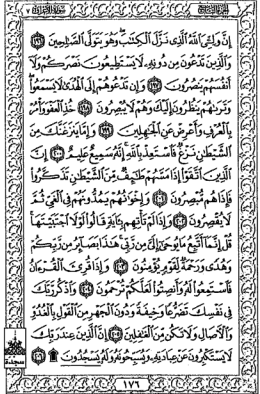 إِنَّ وَلِـِّۧيَ ٱللَّهُ ٱلَّذِي نَزَّلَ ٱلْكِتَٰبَ وَهُوَ يَتَوَلَّى ٱلصَّٰلِحِينَ ۝١٩٦
وَٱلَّذِينَ تَدْعُونَ مِن دُونِهِۦ لَا يَسْتَطِيعُونَ نَصْرَكُمْ وَلَآ
أَنفُسَهُمْ يَنصُرُونَ ۝١٩٧ وَإِن تَدْعُوهُمْ إِلَى ٱلْهُدَىٰ لَا يَسْمَعُوا۟
وَتَرَىٰهُمْ يَنظُرُونَ إِلَيْكَ وَهُمْ لَا يُبْصِرُونَ ۝١٩٨ خُذِ ٱلْعَفْوَ وَأْمُرْ
بِٱلْعُرْفِ وَأَعْرِضْ عَنِ ٱلْجَٰهِلِينَ ۝١٩٩ وَإِمَّا يَنزَغَنَّكَ مِنَ
ٱلشَّيْطَٰنِ نَزْغٌ فَٱسْتَعِذْ بِٱللَّهِ إِنَّهُۥ سَمِيعٌ عَلِيمٌ ۝٢٠٠ إِنَّ
ٱلَّذِينَ ٱتَّقَوْا۟ إِذَا مَسَّهُمْ طَٰٓئِفٌ مِّنَ ٱلشَّيْطَٰنِ تَذَكَّرُوا۟
فَإِذَا هُم مُّبْصِرُونَ ۝٢٠١ وَإِخْوَٰنُهُمْ يَمُدُّونَهُمْ فِي ٱلْغَيِّ ثُمَّ
لَا يُقْصِرُونَ ۝٢٠٢ وَإِذَا لَمْ تَأْتِهِم بِـَٔايَةٍ قَالُوا۟ لَوْلَا ٱجْتَبَيْتَهَا
قُلْ إِنَّمَآ أَتَّبِعُ مَا يُوحَىٰٓ إِلَيَّ مِن رَّبِّي هَٰذَا بَصَآئِرُ مِن رَّبِّكُمْ
وَهُدًى وَرَحْمَةٌ لِّقَوْمٍ يُؤْمِنُونَ ۝٢٠٣ وَإِذَا قُرِئَ ٱلْقُرْءَانُ
فَٱسْتَمِعُوا۟ لَهُۥ وَأَنصِتُوا۟ لَعَلَّكُمْ تُرْحَمُونَ ۝٢٠٤ وَٱذْكُر رَّبَّكَ
فِي نَفْسِكَ تَضَرُّعًا وَخِيفَةً وَدُونَ ٱلْجَهْرِ مِنَ ٱلْقَوْلِ بِٱلْغُدُوِّ
وَٱلْءَاصَالِ وَلَا تَكُن مِّنَ ٱلْغَٰفِلِينَ ۝٢٠٥ إِنَّ ٱلَّذِينَ عِندَ رَبِّكَ
لَا يَسْتَكْبِرُونَ عَنْ عِبَادَتِهِۦ وَيُسَبِّحُونَهُۥ وَلَهُۥ يَسْجُدُونَ ۩ ۝٢٠٦
سجدة
١٧٦